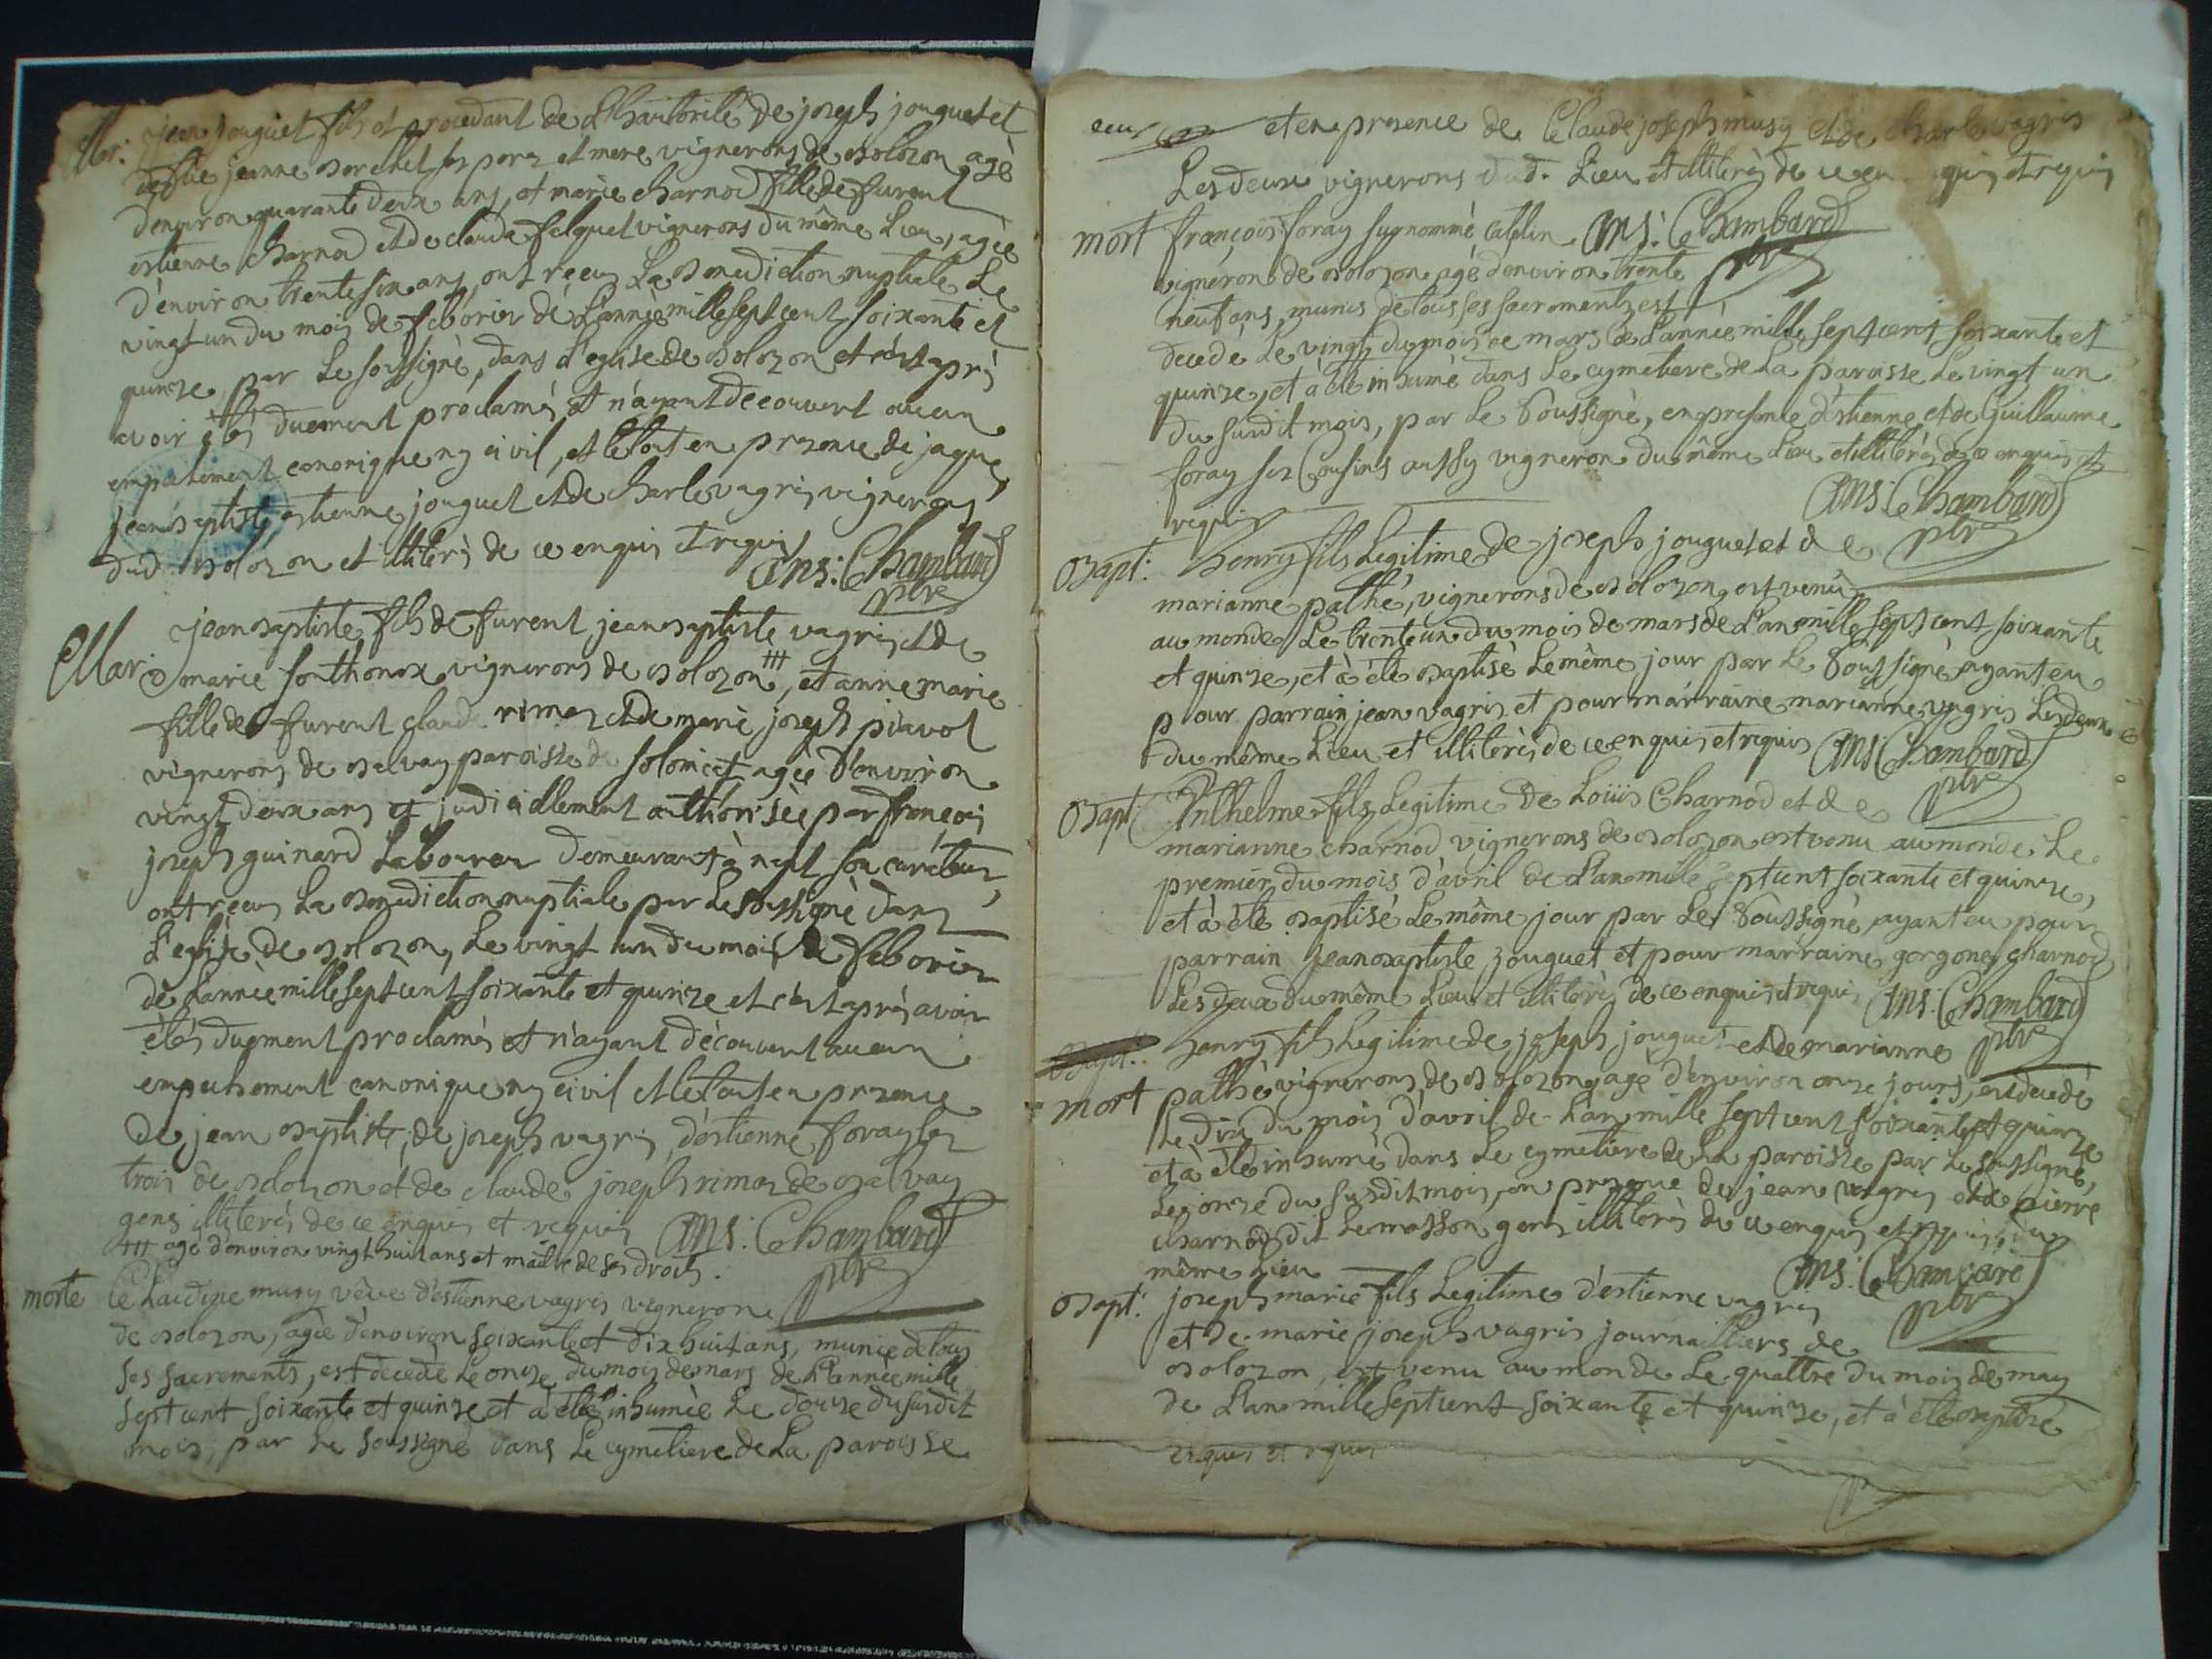 Mar: jean jouguet fils et procedant de L'hautorité de joseph jouguet et
de fue jeanne borchet ses pere et mere vignerons de bolozon agè
d'environ quarante deux ans, et marie charnod fille de furent
estienne charnod et de claude felquet vignerons du même Lieu, agèe
d'environ trente six ans ont reçeu La benediction nuptiale Le
vingt un du mois de feborier de L'annèe mille sept cent soixante et
quinze par Le soussignè, dans L'eglise de bolozon et c'est aprés
avoir étés duement proclamés et n'ayant decouvert aucun
empechement canonique ny civil, et le tout en prezence de jaque,
jean baptiste, estienne jouguet et de charle vagris vignerons
dud. bolozon et illiterés de ce enquis et requis
Ans: Chambard
ptre
Mar: jean baptiste fils de furent jean baptiste vagris et de
marie sonthonax vignerons de bolozon ‡, et anne marie
fille de furent claude rimoz et de marie joseph piavol
vignerons de balvay paroisse de solomiet agèe d'environ
vingt deux ans et judiciellement authorisèe par françois
joseph guinard Laboureur demeurant à napt son curateur,
ont reçeu La benediction nuptiale par Le soussignè dans
L'eglise de bolozon, Le vingt un du mois de feborier
de L'annèe mille sept cent soixante et quinze et c'est aprés avoir
étés duement proclamés et n'ayant dècouvert aucun
empechement canonique ny civil et le tout en prezence
de jean baptiste, de joseph vagris, d'estienne foray les
trois de bolozon et de claude joseph rimoz de balvay
gens illiterés de ce enquis et requis Ans: Chambard
ptre
‡ agè d'environ vingt huit ans et maitre de ses droits.
morte Claudine musy vêve d'estienne vagris vigneronne
de bolozon, agèe d'environ soixante et dix huit ans, munie de tous
ses sacrements, est decedè Le onze du mois de mars de L'annèe mille
sept cent soixante et quinze et à étè inhumèe Le douze du susdit
mois, par Le soussignè dans Le cymetiere de La paroisse
et en prezence de Claude joseph musy et de charle vagris
Les deux vignerons dud. Lieu et illiterés de ce enquis et requis
mort françois foray surnommè catelin Ans: Chambard
ptre
vigneron de bolozon agè d'environ trente
neuf ans, munis de tous ses sacraments est
decedè Le vingt du mois de mars de L'annèe mille sept cent soixante et
quinze, et à étè inhumè dans Le cymetiere de La paroisse Le vingt un
du susdit mois, par Le Soussignè, en presence d'estienne et de Guillaume
foray ses Cousins aussy vigneron du même Lieu et illiterés de ce enquis et
requis Ans: Chambard
ptre
Bapt: henry fils Legitime de joseph jouguet et de
marianne pathé, vignerons de bolozon, est venû
au monde Le trente un du mois de mars de L'an mille sept cent soixante
et quinze, et à étè baptisè Le même jour par Le Soussignè ayant eu
pour parrain jean vagris et pour marraine marianne vagris Les deux
du même Lieu et illiterés de ce enquis et requis Ans: Chambard
ptre
Bapt: Anthelme fils Legitime de Loüis Charnod et de
marianne charnod vignerons de bolozon est venu au monde Le
premier du mois d'avril de L'an mille sept cent soixante et quinze,
et à étè baptisé Le même jour par Le Soussignè ayant eu pour
parrain jean baptiste jouguet et pour marraine gorgone charnod
Les deux du même Lieu et illiterés de ce enquis et requis Ans: Chambard
ptre
Bapt: henry fils Legitime de joseph jouguet et de marianne
mort pathè vignerons de bolozon agè d'environ onze jours, est decedè
Le dix du mois d'avril de L'an mille sept cent soixante et quinze
et à étè inhumè dans Le cymetiere de La paroisse par Le soussignè,
Le onze du susdit mois, en prezence de jean vagris et de pierre
charnod dit Le masson gens illiterés de ce enquis et requis du
même Lieu Ans: Chambard
ptre
Bapt: joseph marie fils Legitime d'estienne vagris
et de marie joseph vagris journailliers de
bolozon, est venu au monde Le quattre du mois de may
de L'an mille sept cent soixante et quinze, et à étè baptizè
enquis et requis